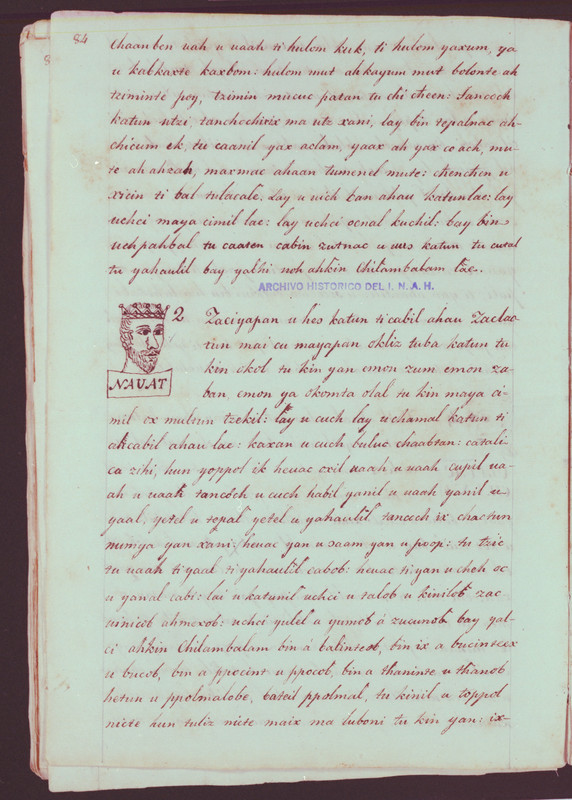 84
Chaanben uah u uaah ti hulom kuk, ti hulom yaxum, ya
u kalkaxte kaxbom: hulom mut ahkayum mut bolonte ah
tziminte poy, tzimin macuc patan tu chi cheen: Tancoch
katun utzi, tanchochirix ma utz xani, lay bin tepalnac ah-
chicum ek, tu caanil yax aclam, yaax ah yax coach, mu-
te ah ahzah, maxmac ahaan tumenel mute: chenchen u
xicin ti bal tulacale. Lay u uich Can ahau katunlae: lay
uchci maya cimil lae: lay uchci ocnal kuchil: bay bin
uchpahbal tu caaten cabin zutnac u uus katun tu cutal
tu yahaulil bay yalhi noh ahkin Chilambalam lae.
ARCHIVO HISTORICO DEL I. N. A. H.
2 Zaciyapan u hes katun ti cabil ahau Zaclac-
NAUAT
tun mai cu mayapan okliz tuba katun tu
kin okol tu kin yan emon zum emon za-
ban, emon ya okomta olal tu kin maya ci-
mil ox multun tzekil: lay u cuch lay uchamal katun ti
ahcabil ahau lae: kaxan u cuch buluc chaabtan: catali-
ca zihi, hun yoppol ik heuac oxil uaah u uaah cupil ua-
ah u uaah tancoch u cuch habil yanil u uaah yanil u
yaal, yetel u tepal yetel u yahaulil tancoch ix chactun
numya yan xani, heuac yan u saam yan u poop: tu tzic
tu uaah ti yaal ti yahaulil cabob: heuac ti yan u choh oc
u yanal cabi: lai u katunil uchci u talob u kinilob zac
uinicob ahmexob: uchci yulel a yumob á zucunob bay yal-
ci ahkin Chilambalam bin á balinteob, bin ix a bucinteex
u bucob, bin a ppocint u ppocob, bin a thaninte u thanob
hetun u ppolmalobe, bateil ppolmal, tu kinil u toppol
nicte hun tuliz nicte maix ma luboni tu kin yan: ix-